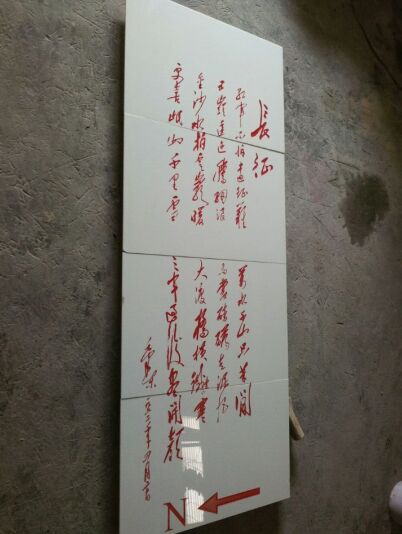 長征
紅軍不怕遠征難 萬水千山只等閒
五嶺逶迤騰細浪 烏蒙磅礴走泥丸
金沙水拍雲崖暖 大渡橋橫鐵索寒
更喜岷山千里雪 三軍過後盡開顏
毛澤東
一九六二年四月廿日
N